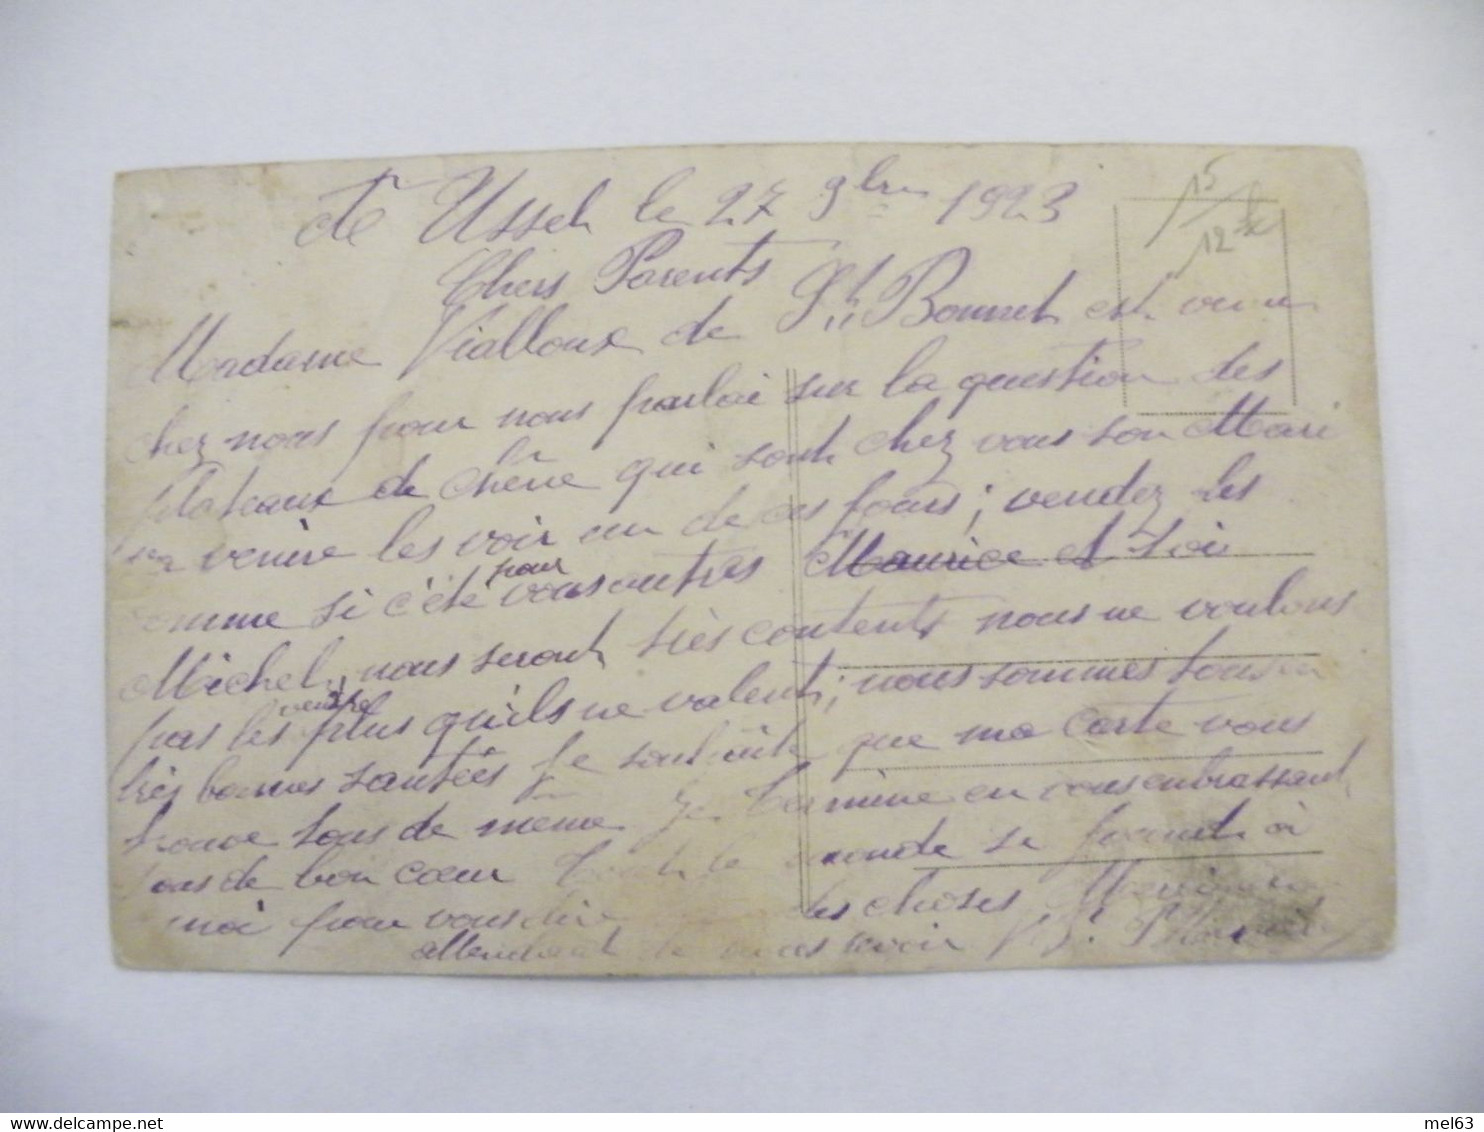 de Ussel le 27 9bre 1923
15
12
Chers Parents
Madame Vialloux de St Bonnet est venue
chez nous pour nous parlai sur la question des
plateaux de chêne qui sont chez vous son Mari
va venire les voir un de ces jours; vendez les
comme si c'été pour vous autres Maurice et Toi
Michel, nous seront très contents nous ne voulons
pas les vendre plus qu'ils ne valent; nous sommes tous en
très bonnes santées Je souhaite que ma carte vous
trouve tous de même Je termine en vous embrassant
tous de bon cœur Tout le monde se joint à
moi pour vous dire des choses
attendant de vous revoir
mel63